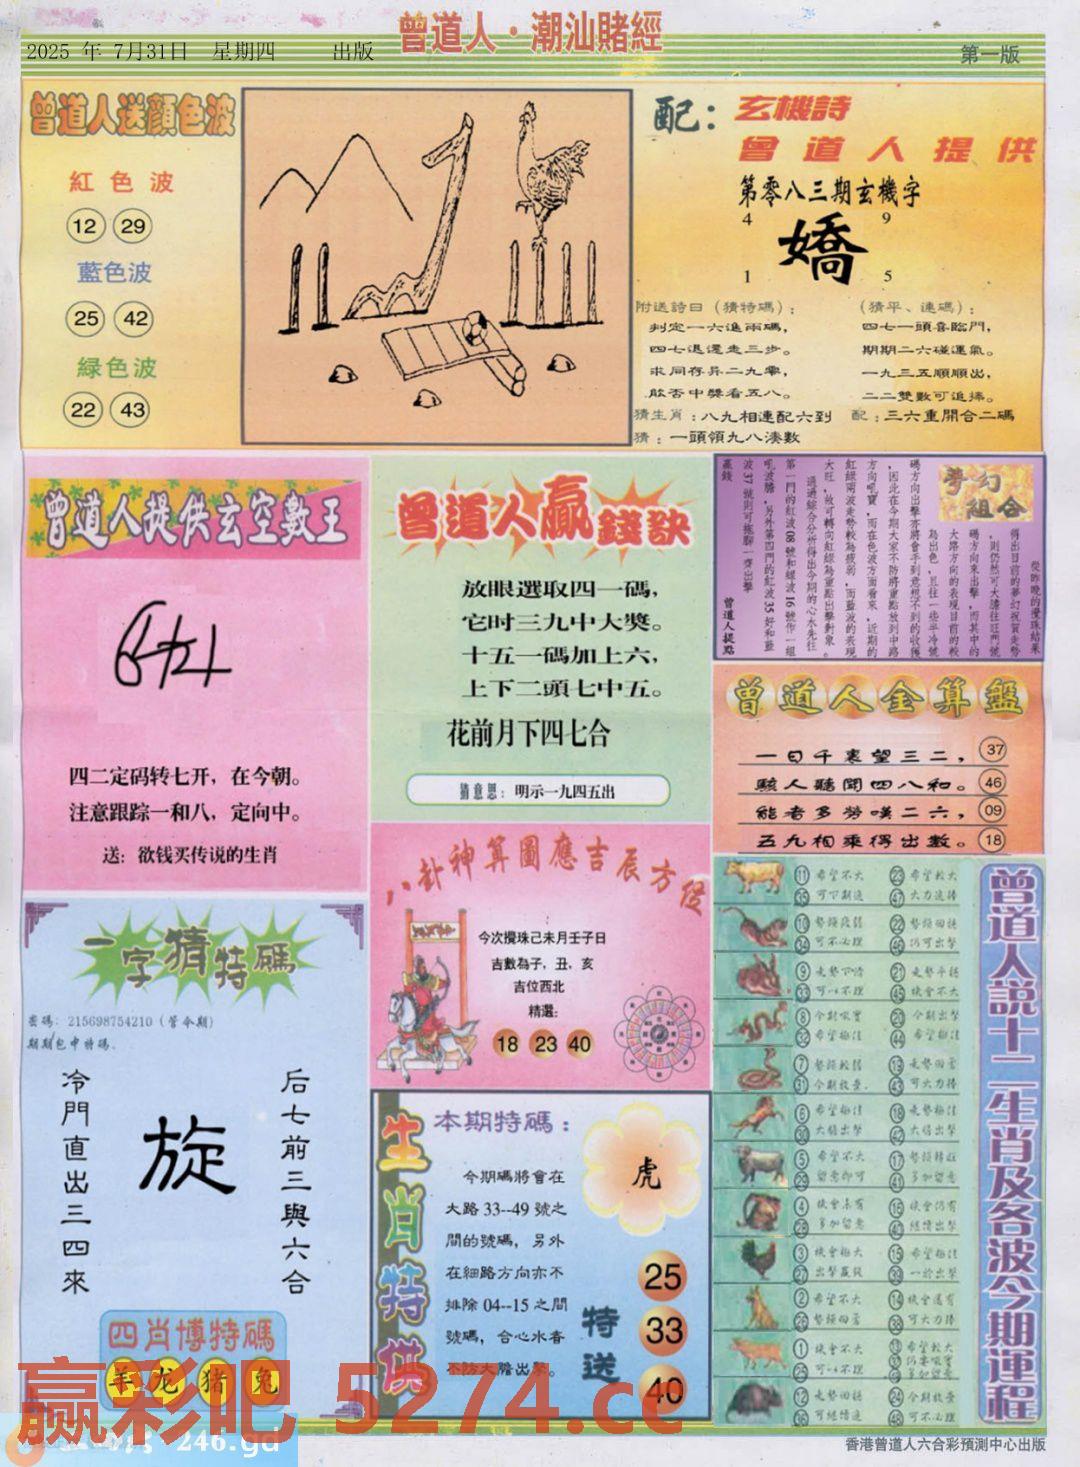 曾道人·潮汕賭經
2025 年 7月31日 星期四 出版
第一版
曾道人送顔色波
紅色波
12 29
藍色波
25 42
緑色波
22 43
配：玄機詩
曾道人提供
第零八三期玄機字
4 9
嬌
1 5
附送詩曰（猜特碼）：
判定一六進兩碼，
四七退還走三步。
求同存异二九零，
能否中獎看五八。
（猜平、連碼）：
四七一頭喜臨門，
期期二六碰運氣。
一九三五順順出，
二二雙數可追捧。
猜生肖：八九相連配六到 配：三六重開合二碼
猜：一頭領九八湊數
曾道人提供玄空數王
四二定码转七开，在今朝。
注意跟踪一和八，定向中。
送：欲钱买传说的生肖
曾道人贏錢訣
放眼選取四一碼，
它时三九中大獎。
十五一碼加上六，
上下二頭七中五。
花前月下四七合
猜意思：明示一九四五出
夢幻組合
從昨晚的攪珠結果
得出目前的夢幻祝賀走勢
，則仍然可大膽往旺門號
碼方向來出擊，而其中的
大路方向的表現目前的較
為出色，且往一些半冷號
碼方向出擊亦將會手到意想不到的收獲
，因此在今期大家不防將重點放到中路
方向吼實，而在色波方面看來，近期的
紅緑兩波走勢較為疲弱，而藍波的表現
大旺，故可轉向紅緑為重點出擊對象。
通過綜合分析得出今期的心水先往
第一門的紅波08號和緑波16號作一組
吼波膽，另外第四門的紅波35好和藍
波37號則可拖脚一齊出擊
贏錢
曾道人提點
曾道人金算盤
一日千裏望三二， 37
駭人聽聞四八和。 46
能者多勞嘆二六， 09
五九相乘得出數。 18
八卦神算圖應吉辰方位
今次攪珠己未月壬子日
吉數為子，丑，亥
吉位西北
精選：
18 23 40
一字猜特碼
密碼：215698754210（管今期）
期期包中特碼.
冷門直出三四來
旋
后七前三與六合
四肖博特碼
羊 龙 猪 兔
生肖特供
本期特碼：
今期碼將會在
大路33--49號之
間的號碼，另外
在細路方向亦不
排除04--15之間
號碼，合心水者
不防大膽出擊。
虎
特送
25
33
40
曾道人説十二生肖及各波今期運程
11 希望不大 23 希望較大
35 可下期追 47 大力追捧
10 勢頭疲弱 22 勢頭回穩
34 可不必理 46 仍可出擊
9 走勢下滑 21 走勢平穩
33 可以不理 45 機會不大
8 今期吼實 20 今期出擊
32 希望極佳 44 希望極佳
7 勢頭較弱 19 走勢回落
31 今期放棄 43 可大力捧
6 希望極佳 18 走勢極佳
30 大膽出擊 42 大膽出擊
5 希望不大 17 勢頭轉旺
29 留意即可 41 多加留意
4 機會未有 16 機會仍有
28 多加留意 40 繼續出擊
3 機會極大 15 希望極佳
27 出擊贏錢 39 一於出擊
2 希望不大 14 機會還有
26 勢頭回落 38 可大力捧
1 機會不大 13 希望較大
25 可以不理
12 走勢回穩 24 今期放棄
36 可繼續追 48 可不必理
赢彩吧 5274.cc
246.gd
香港曾道人六合彩預測中心出版